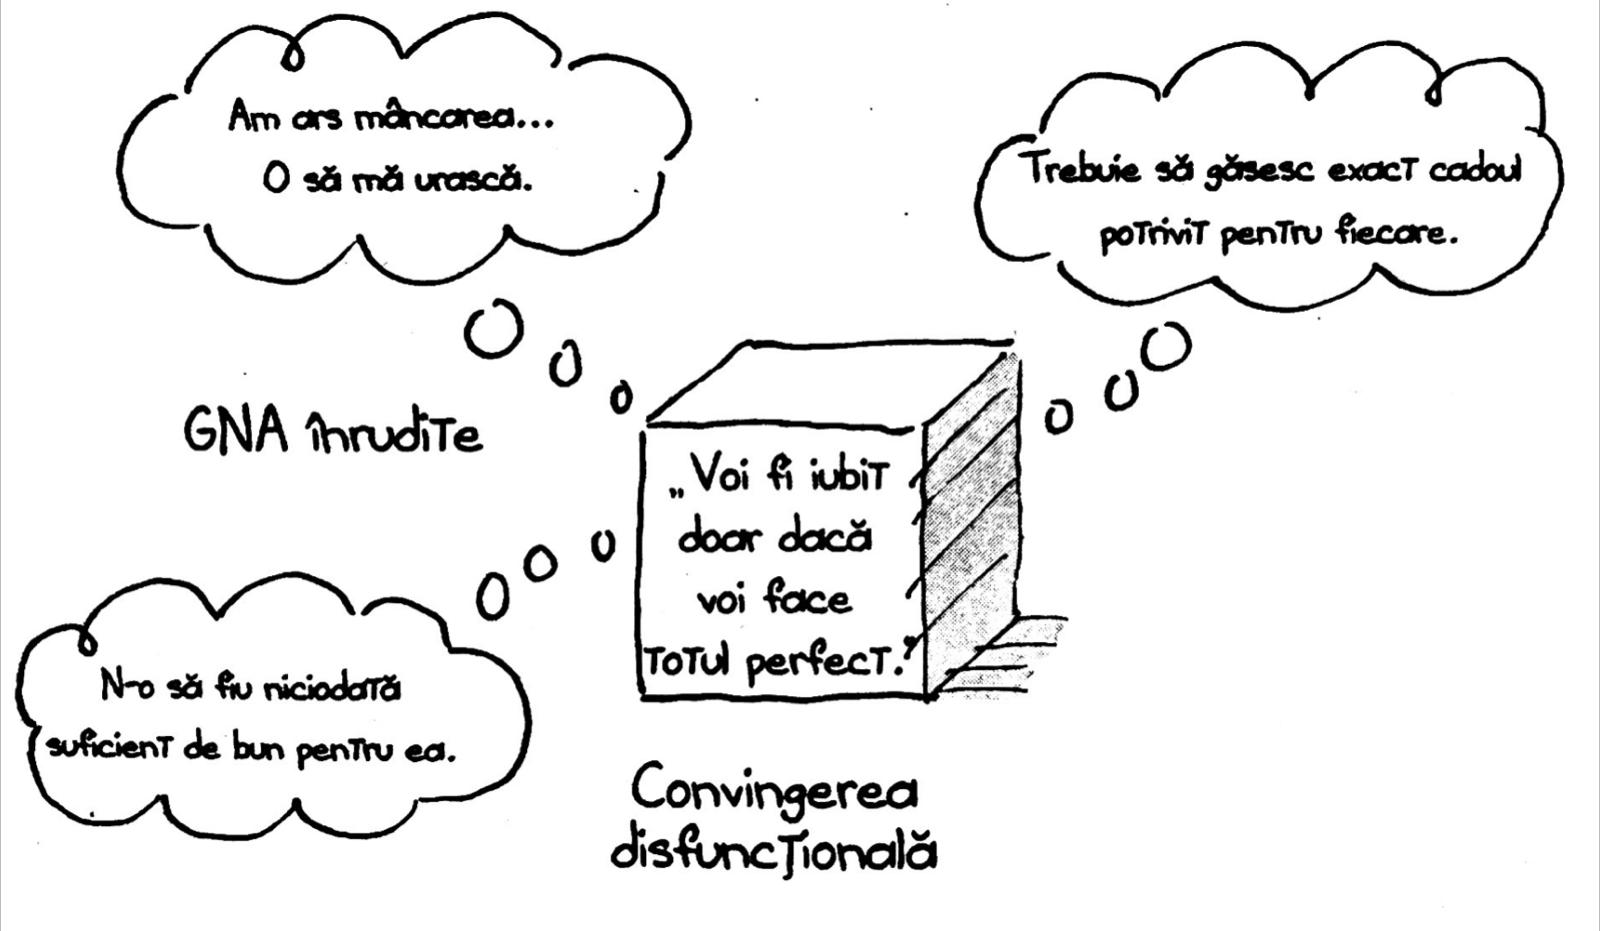 Am ars mâncarea...
O să mă urască.
Trebuie să găsesc exact cadoul
potrivit pentru fiecare.
GNA înrudite
„Voi fi iubit
doar dacă
voi face
totul perfect.”
N-o să fiu niciodată
suficient de bun pentru ea.
Convingerea
disfuncţională